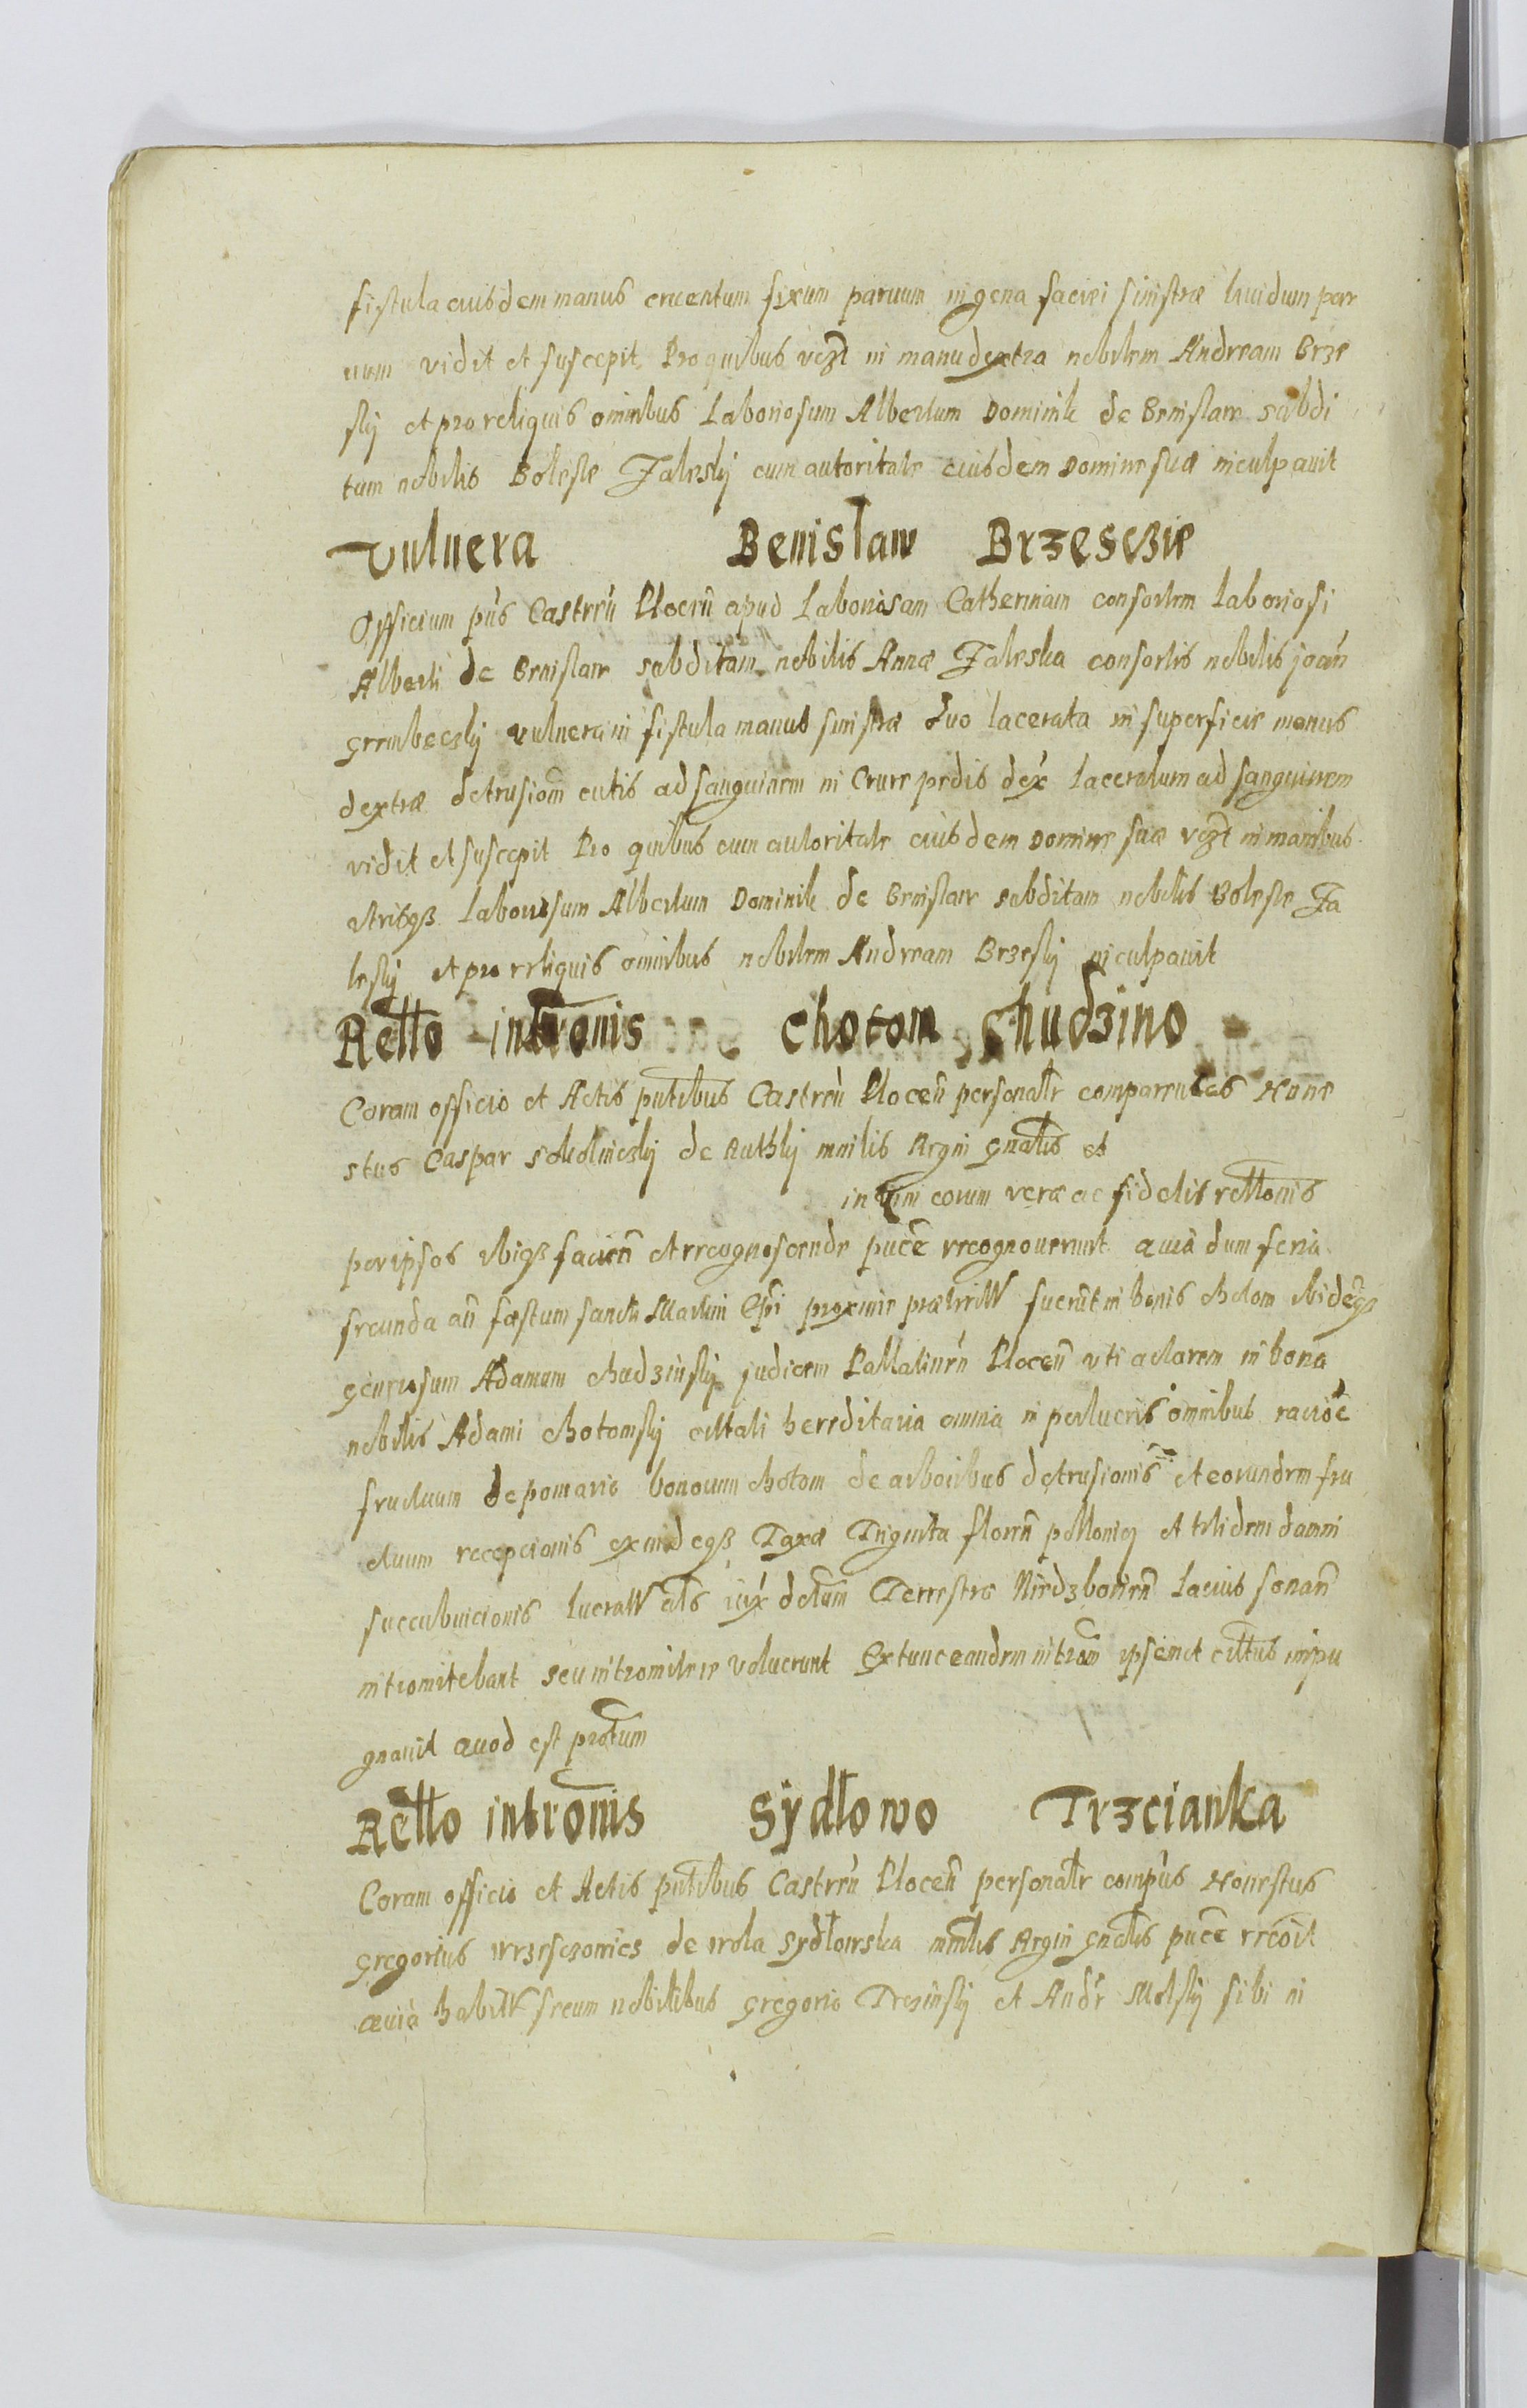 fistula eiusdem manus cruentum fixum paruum in gena faciei sinistræ liuidum par
uum vidit et suscepit Pro quibus vczt in manu dextra nobilem Andream Brze
skj et pro reliquis omnibus Laboriosum Albertum Dominik de Benislaw subdi
tum nobilis Boleste Zaleskj cum autoritate eiusdem Domine suæ inculpauit
Vulnera Benisław Brzesczie
Officium pñs Castreñ Plocen̄ apud Laboriosam Catherinam consortem Laboriosi
Alberti de Benislaw subditam nobilis Annæ Zaleska consortis nobilis joañ
Grembeczkj vulnera in fistula manus sinistræ duo lacerata in superficie manus
dextræ detrusiom̄ cutis ad sanguinem in Crure pedis dex̄ laceratum ad sanguinem
vidit et suscepit Pro quibus cum autoritate eiusdem Domine suæ vczt in manibus
vtrisqß Laboriosum Albertum Dominik de Benislaw subditam nobilis Boleste Za
leskj et pro reliquis omnibus nobilem Andream Brzeskj inculpauit
Rel̄tto intr̄onis Chotom Chudzino
Coram officio et Actis pñtibus Castreñ Plocen̄ personalr̄ comparentes Hone
stus Caspar Sokolniczkj de Ruthkj mnilis Regni Gnal̄is et
in vim eorum veræ ac fidelis rel̄tonis
per ipsos vbiqß facien̄ et recognoscende puc̄e recognouerunt quià dum feria
secunda an̄ fæstum sancti Martini Ep̄i proxime præteritt̄ fuerūt in bonis Chotom ibidem̄qß
Generosum Adamum Chudzinskj judicem Pallatineñ Plocen̄ vti actorem in bona
nobilis Adami Chotomskj cittati hereditaria omnia in perlucris omnibus racioe
fructuum de pomario bonorum Chotom de arboribus detrusionis et eorundem fru
ctuum recepcionis exindeqß Taxæ Triginta floren̄ pollonicj et totidem damni
succubuicionis lucratt̄ al̄s iux̄ dectum̄ Terrestræ Niedzborien̄ Lacius sonan̄
intromitebant seu intromitere voluerunt Extunc eandem introm̄ ipsenet cittatus impu
gnauit Quod est protum̄
Rel̄tto intr̄onis Sydłowo Trzcianka
Coram officio et Actis pñtibus Castreñ Plocen̄ personalr̄ compn̄s Honestus
Gregorius Wrzesczowics de Wola Sydłowska mnlis Regni Gnal̄is puc̄e recōit
quià habitt̄ secum nobilibus Gregorio Trczinskj et Andr̄ Molskj sibi in